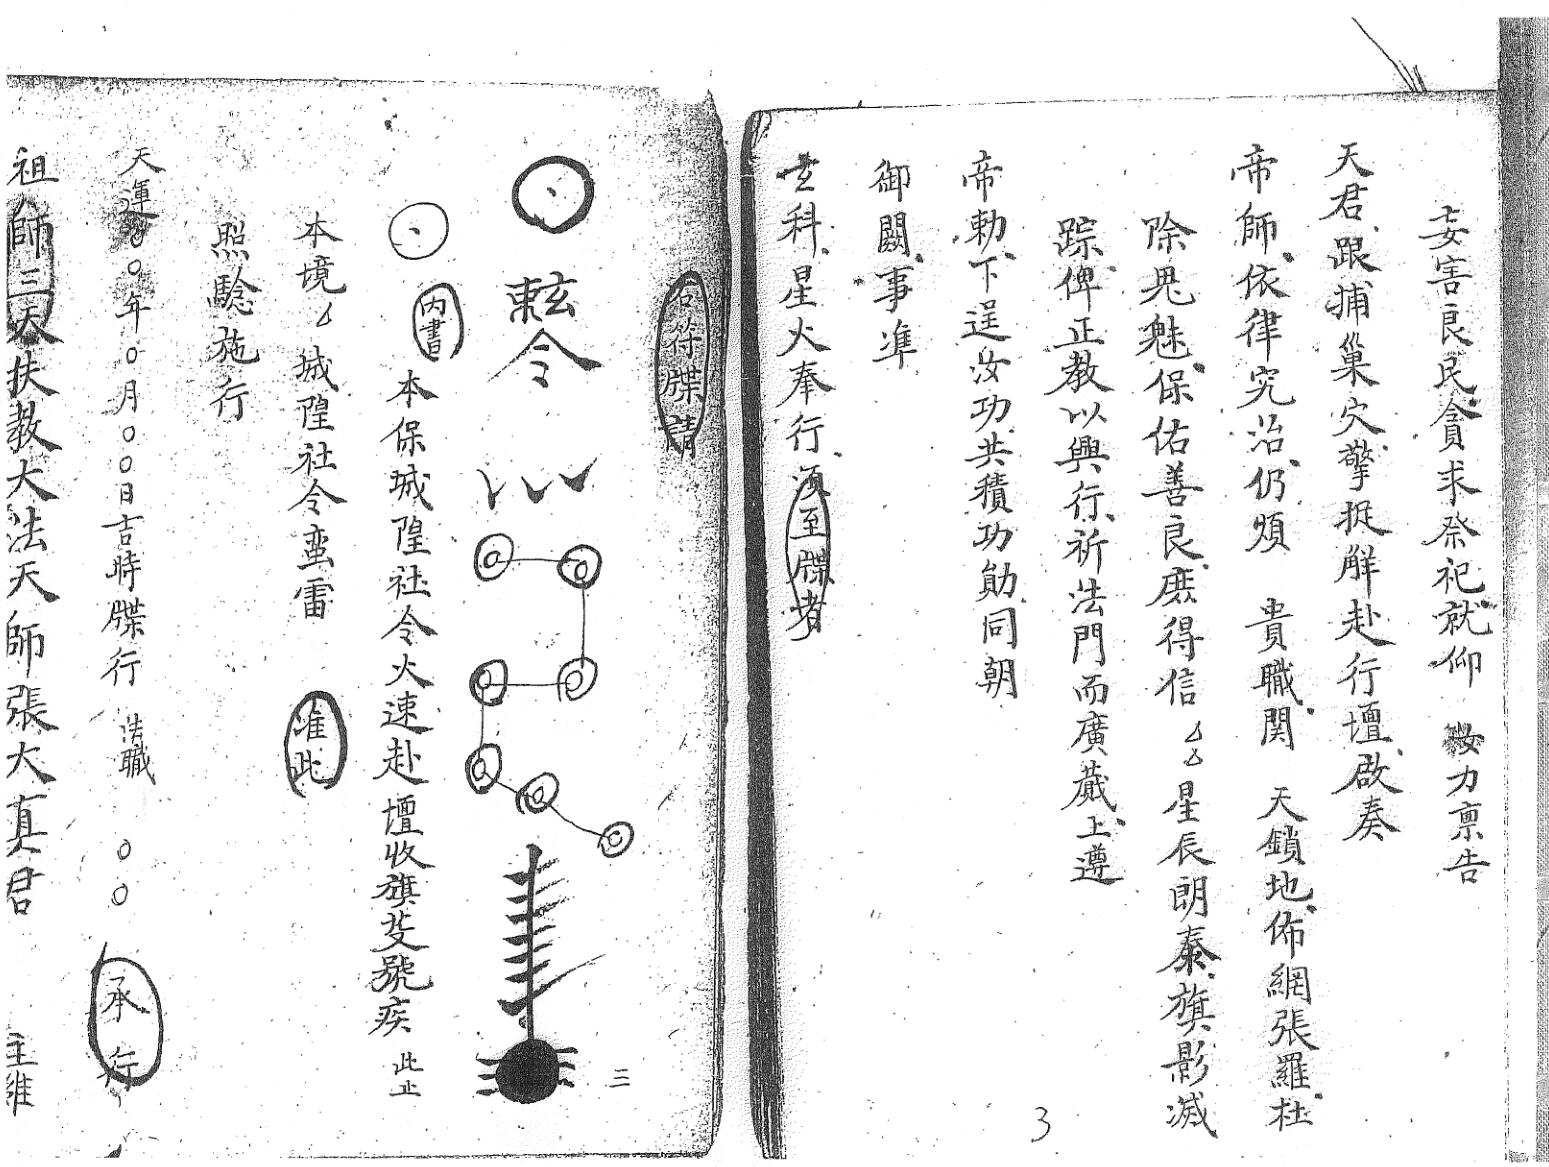 妄害良民貪求祭祀就仰 汝力稟告
天君跟捕巢穴擎捉解赴行壇啟奏
帝師依律究治仍煩 貴職関 天鎖地佈網張羅杜
除鬼魅保佑善良庶得信 厶厶星辰朗秦旗影滅
踪俾正教以興行祈法門而廣蕆上遵
帝勅下逞汝功共積功勛同朝
御闕事准
玄科星火奉行須至牒者
3
右符牒請
敕令
三
內書 本保城隍社令火速赴壇收旗芟號疾 此止
本境厶城隍社令蛮雷 准此
照驗施行
天運○○年○月○○日吉時牒行 法職 ○○ 承行
祖師三天扶教大法天師張大真君 主維